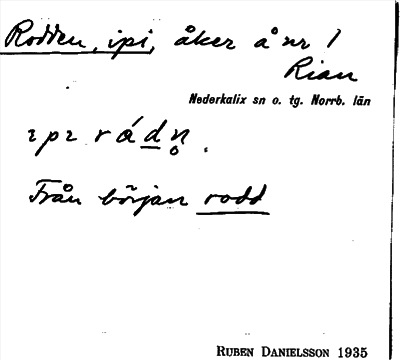 Rodden, ipi, åker å nr 1
Rian
Nederkalix sn o. tg. Norrb. län
ɿpɿ råd̲n̥.
Från början rodd
RUBEN DANIELSSON 1935